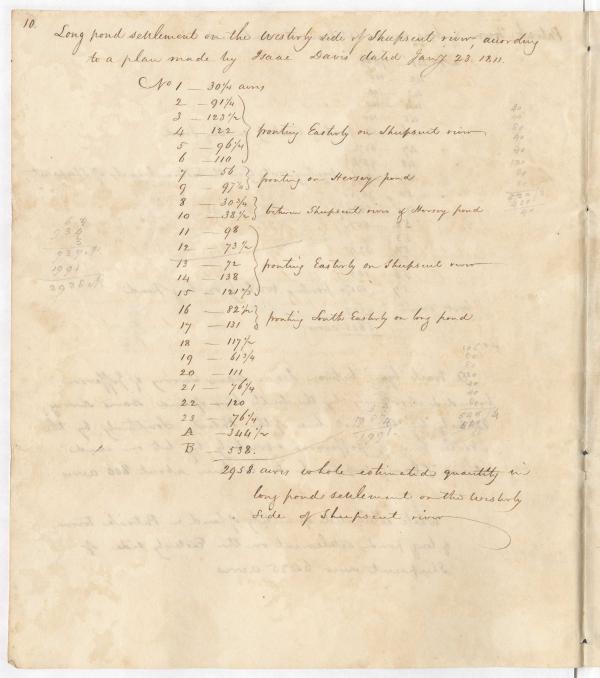 10.
Long pond settlement on the Westerly side of Sheepscut river, acording
to a plan made by Isaac Davis dated Jany 23. 1811.
No 1 — 30 1/4 acres
2 — 91 1/4
3 — 123 1/2
4 — 122 fronting Easterly on Sheepscut river
5 — 96 1/4
6 — 110
7 — 56
9 — 97 fronting on Hersey pond
8 — 30 3/4
10 — 38 1/2 between Sheepscut river & Hersey pond
11 — 98
12 — 73 1/2
13 — 72 fronting Easterly on Sheepscut river
14 — 138
15 — 121
16 — 82 1/2
17 — 131 fronting South Easterly on long pond
18 — 117 1/2
19 — 61 3/4
20 — 111
21 — 76 1/4
22 — 120
23 — 76 1/4
A — 344 1/2
B — 538.
2958. acres whole estimated quantity in
long pond settlement on the Westerly
side of Sheepscut river